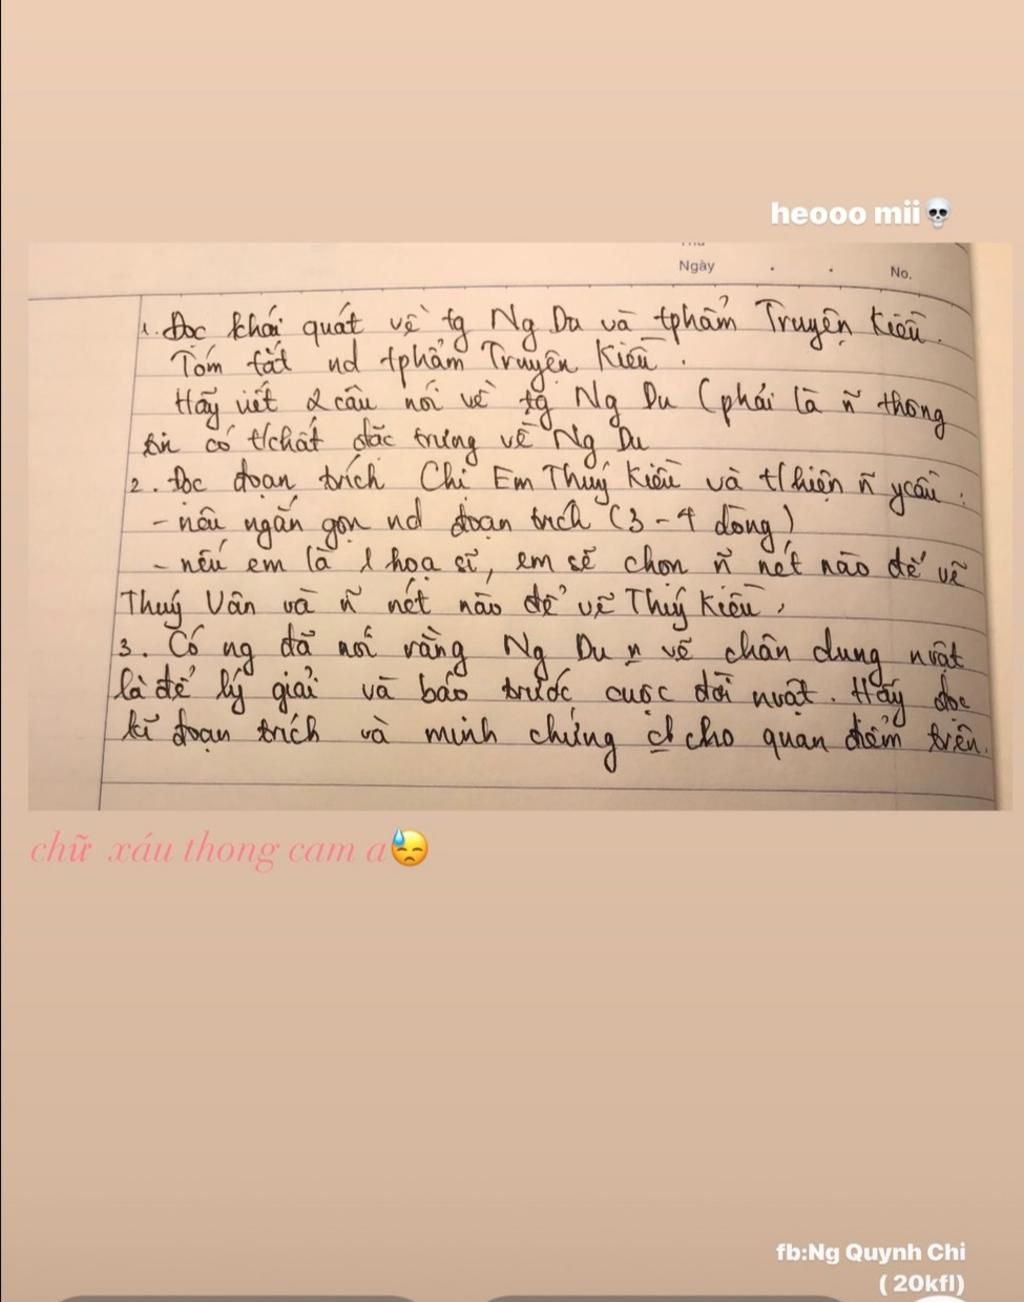 heooo mii💀
Thứ
Ngày . . No.
1. Đọc khái quát về tg Ng Du và tphẩm Truyện Kiều.
Tóm tắt nd tphẩm Truyện Kiều.
Hãy viết 2 câu nói về tg Ng Du (phải là ñ thông
tin có t/chất đặc trưng về Ng Du
2. Đọc đoạn trích Chị Em Thuý Kiều và t/hiện ñ ycầu:
- nêu ngắn gọn nd đoạn trích (3-4 dòng)
- nếu em là 1 hoạ sĩ, em sẽ chọn ñ nét nào để vẽ
Thuý Vân và ñ nét nào để vẽ Thuý Kiều,
3. Có ng đã nói rằng Ng Du n vẽ chân dung nvật
là để lý giải và báo trước cuộc đời nvật. Hãy đọc
kĩ đoạn trích và minh chứng cho quan điểm trên.
chữ xáu thong cam a😓
fb:Ng Quynh Chi
( 20kfl)